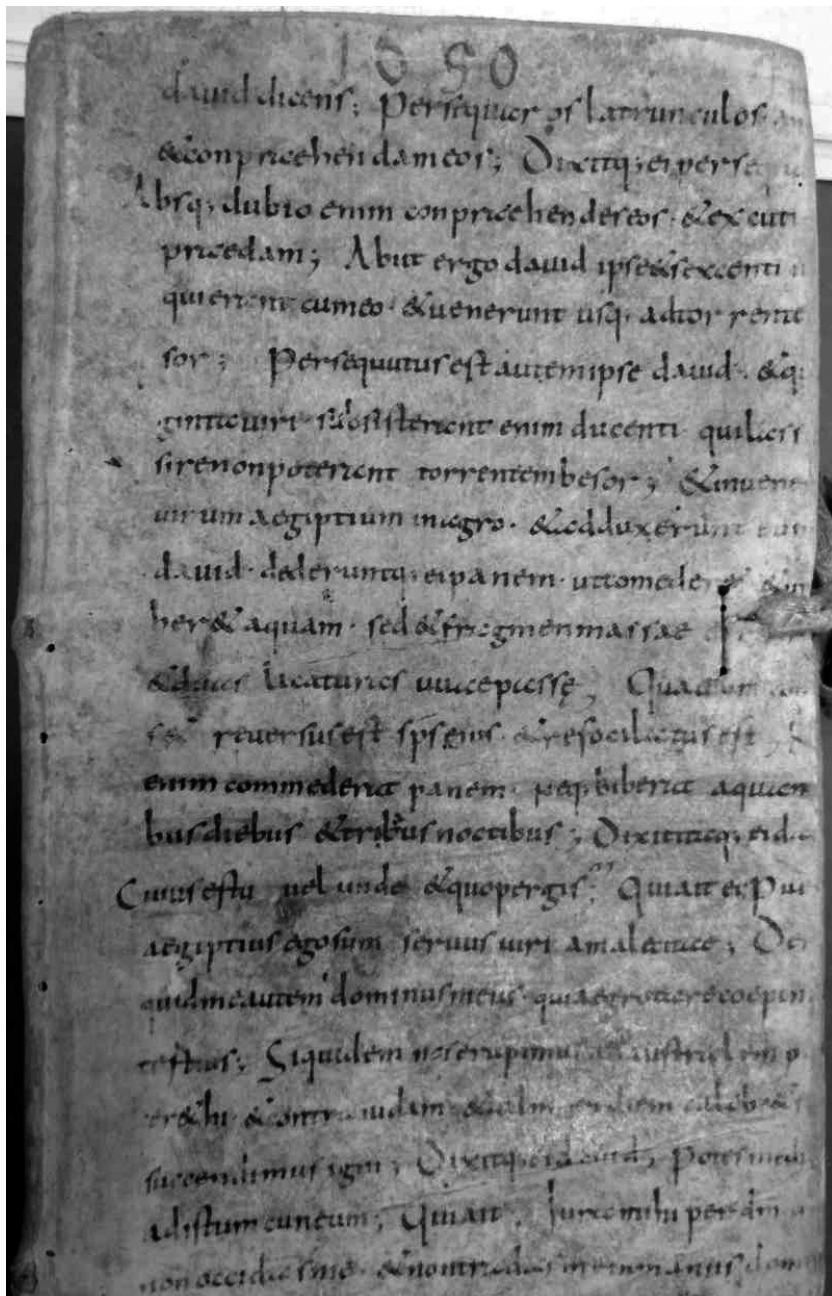 1650
dauid dicens; Persequar os latrunculos an
&conpraehendam eos; Dixitq; ei perseq
Absq; dubio enim conpraehendes eos · & excuti
praedam; Abiit ergo dauid ipse & sexcenti u
qui erant cum eo · & uenerunt usq· ad torrente
sor; Persequutus est autem ipse dauid · & qu
gintauiri · substiterant enim ducenti · qui lass
sire non poterant torrentem besor; & inuene
uirum aegiptium in agro · & adduxerunt eum
dauid · dederuntq; ei panem · ut comederet &
ber& aquam · sed & fragmen massae
& duas ligaturas uuae passę; Qua
reuersus est sps eius & resocilatus est;
enim commederat panem · neq; biberat aquam
bus diebus & tribus noctibus; Dixit itaq; ei da
Cuius es tu uel unde & quo pergis; Qui ait ei Pu
aegiptius ego sum seruus uiri amalecitae; De
quid me autem dominus meus · quia egrotare coepi n
Siquidem nos erupimus australem p
& contra iudam · & caleb &
succendimus igni; Dixitq; ei dauid; Potes me
ad istum cuneum; Qui ait; Iura mihi per dm
non occidas me · & non tradas me in manus dom